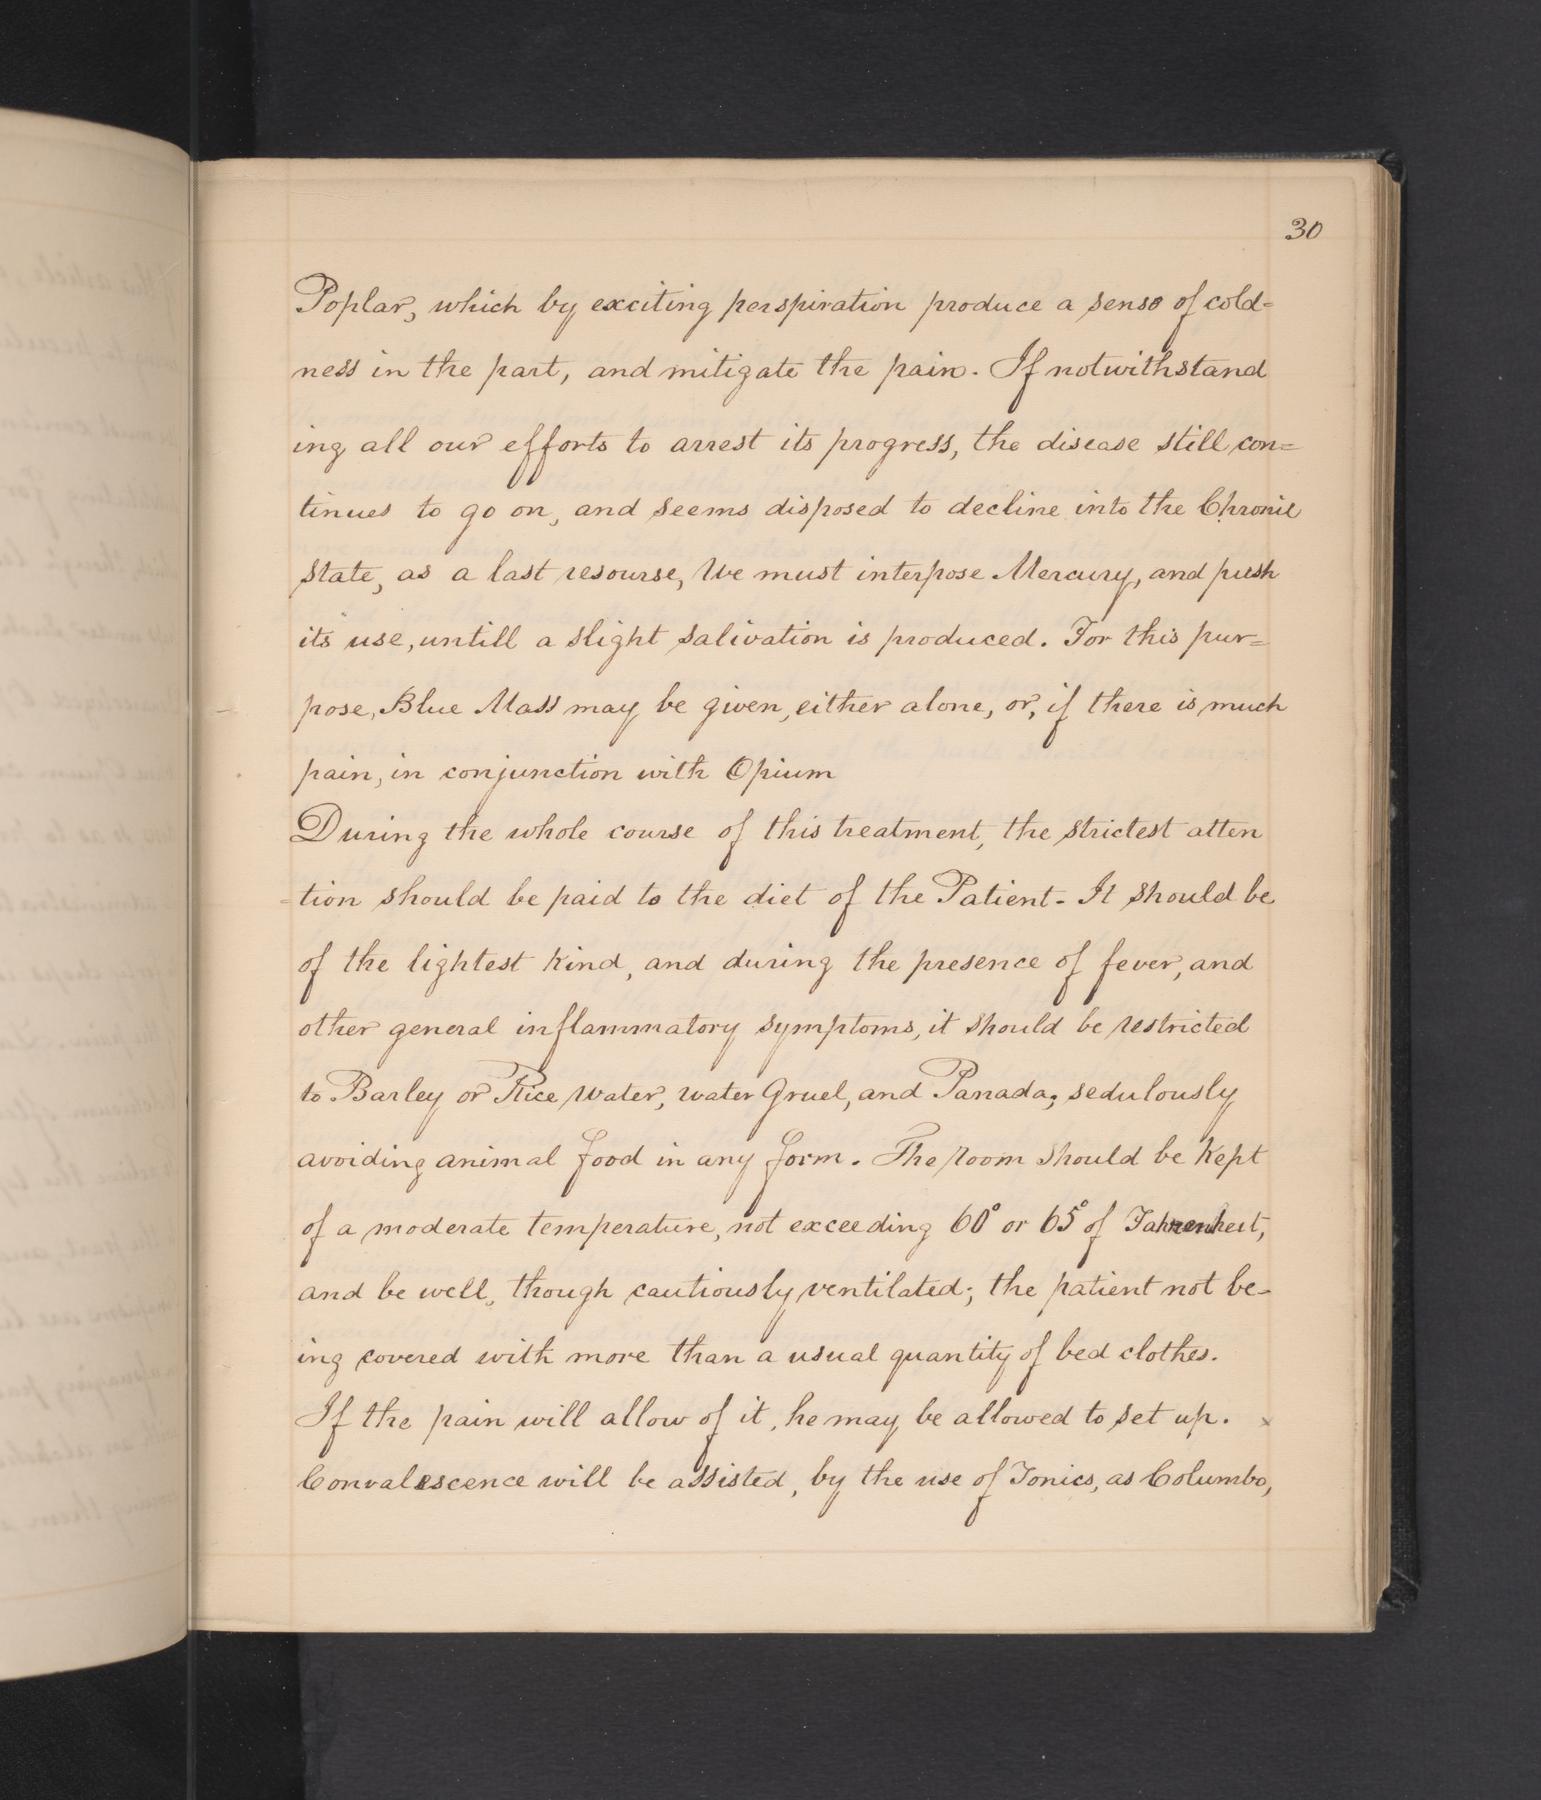 30
Poplar, which by exciting perspiration produce a sense of cold=
ness in the part, and mitigate the pain. If notwithstand
ing all our efforts to arrest its progress, the disease still con=
tinues to go on, and seems disposed to decline into the Chronic
state, as a last resourse, We must interpose Mercury, and push
its use, untill a slight salivation is produced. For this pur=
pose, Blue Mass may be given, either alone, or, if there is much
pain, in conjunction with Opium
During the whole course of this treatment, the strictest atten
=tion should be paid to the diet of the Patient - It should be
of the lightest kind, and during the presence of fever, and
other general inflammatory symptoms, it should be restricted
to Barley or Rice water, water Gruel, and Panada; sedulously
avoiding animal food in any form. The room should be kept
of a moderate temperature, not exceeding 60° or 65° of Fahrenheit,
and be well, though cautiously ventilated; the patient not be-
ing covered with more than a usual quantity of bed clothes.
If the pain will allow of it, he may be allowed to set up. x
Convalescence will be assisted, by the use of Tonics, as Columbo,